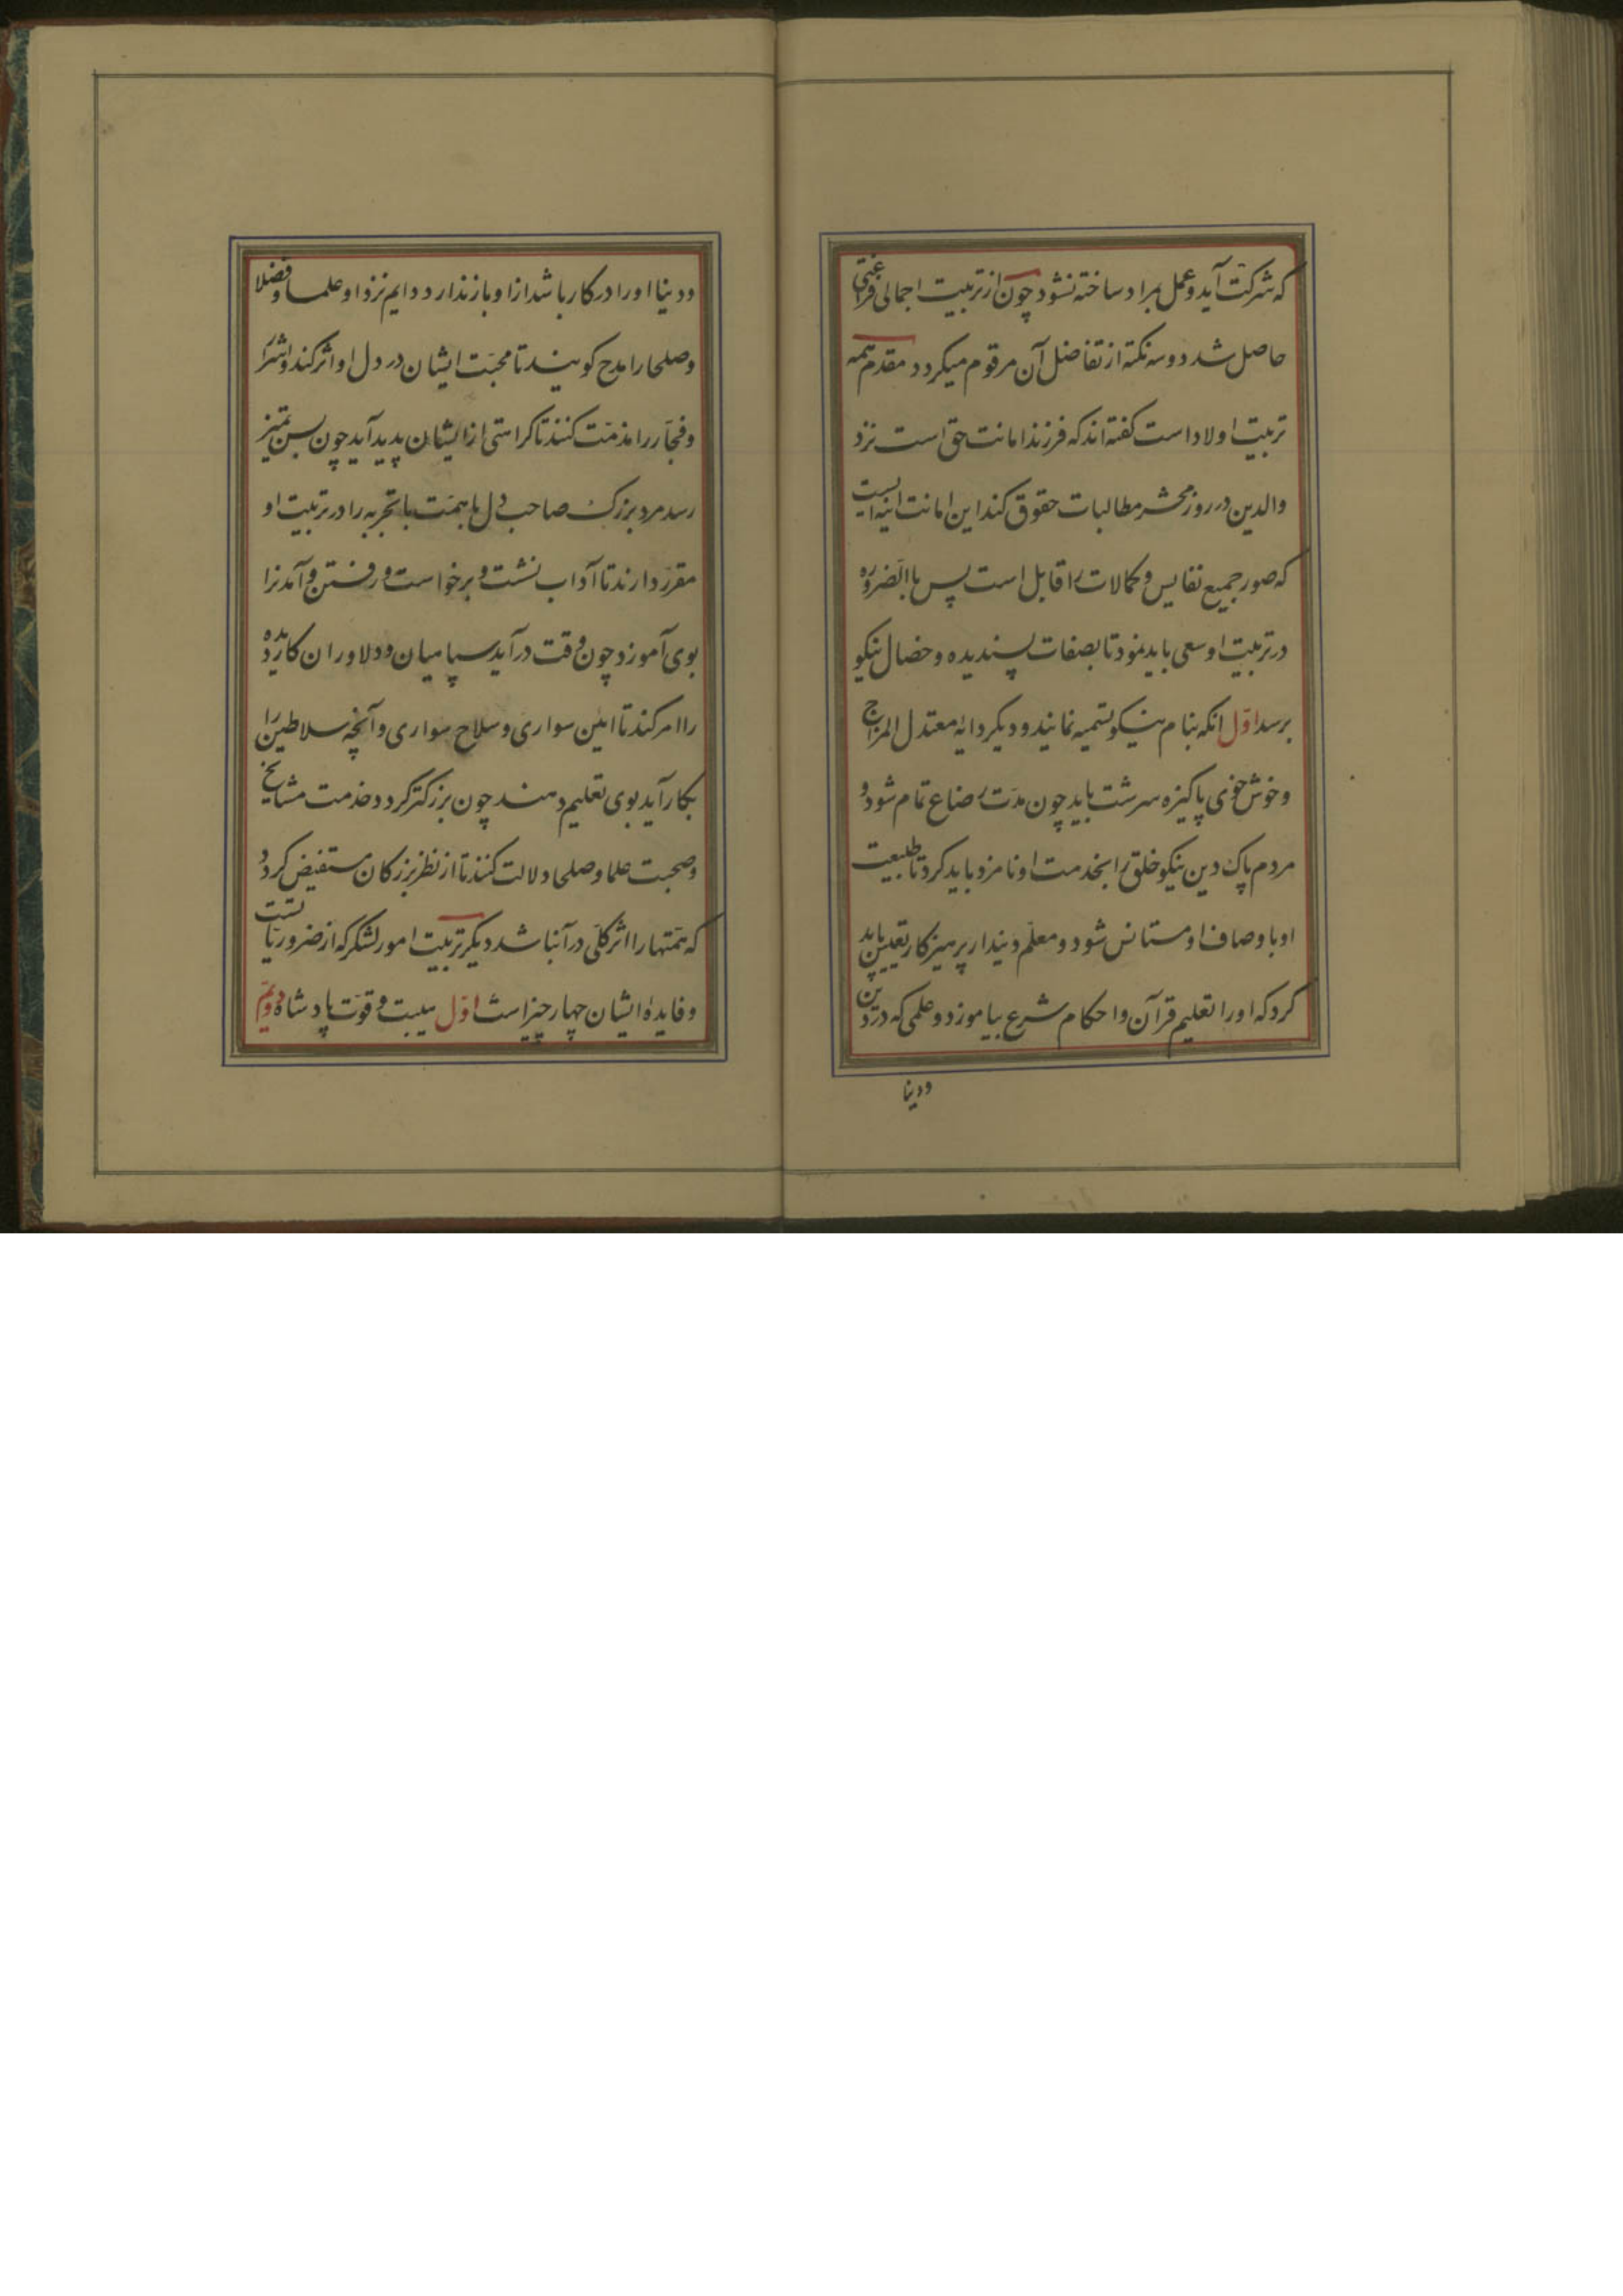 که شرکت آید و عمل بمراد ساخته نشود چون از تربیت اجمالی فراغتی
حاصل شد دو سه نکته از تفاضل آن مرقوم میکردد مقدم همه
تربیت اولاد است کفته اند که فرزند امانت حق است نزد
والدین در روز محشر مطالبات حقوق کند این امانت
که صور جمیع نفایس و کمالات را قابل است پس باالضروره
در تربیت او سعی باید نمود تا بصفات پسندیده و خصال نیکو
برسد اوّل انکه بنام نیکو تسمیه نمایند و دیکر دایهٔ معتدل المزاج
و خوش خوی پاکیزه سرشت باید چون مدّت رضاع تمام شود و
مردم پاک دین نیکو خلق را بخدمت او نامزد باید کرد تا طبیعت
او با وصاف او مستانس شود و معلّم دیندار پرهیزکار تعیین باید
کرد که او را تعلیم قرآن و احکام شرع بیاموزد و علمی که در دین
و دینا
و دینا او را در کار باشد از او باز ندارد و دایم نزد او علما و فضلا
و صلحا را مدح کویند تا محبّت ایشان در دل او اثر کند و اشرار
و فجّار را مذمّت کنند تا کراهتی از ایشان پدید آید چون بسن تمیز
رسد مرد بزرک صاحب دل با همّت با تجربه را در تربیت او
مقرّر دارند تا آداب نشت و برخواست و رفتن و آمدنرا
بوی آموزد چون وقت درآید سپاهیان و دلاوران کاردیده
را امر کند تا ائین سواری و سلاح سواری و آنچه سلاطین را
بکار آید بوی تعلیم دهند چون بزرکتر کردد خدمت مشایخ
و صحبت علما و صلحا دلالت کنند تا از نظر بزرکان مستفیض کردد
که همّتها را اثر کلّی در آنباشد دیکر تربیت امور لشکر که از ضروریات
و فایدهٔ ایشان چهار چیز است اوّل هیبت و قوّت پادشاه دویّم